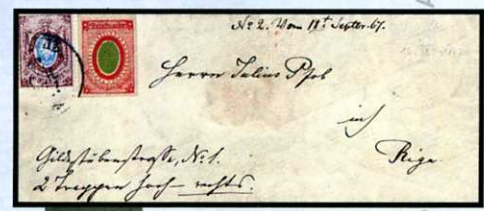 No 2. Vom 18t Septbr. 67.
Herrn Julius
in
Riga
Gildestubenstraße, No 1.
2 Treppen hoch – rechts.